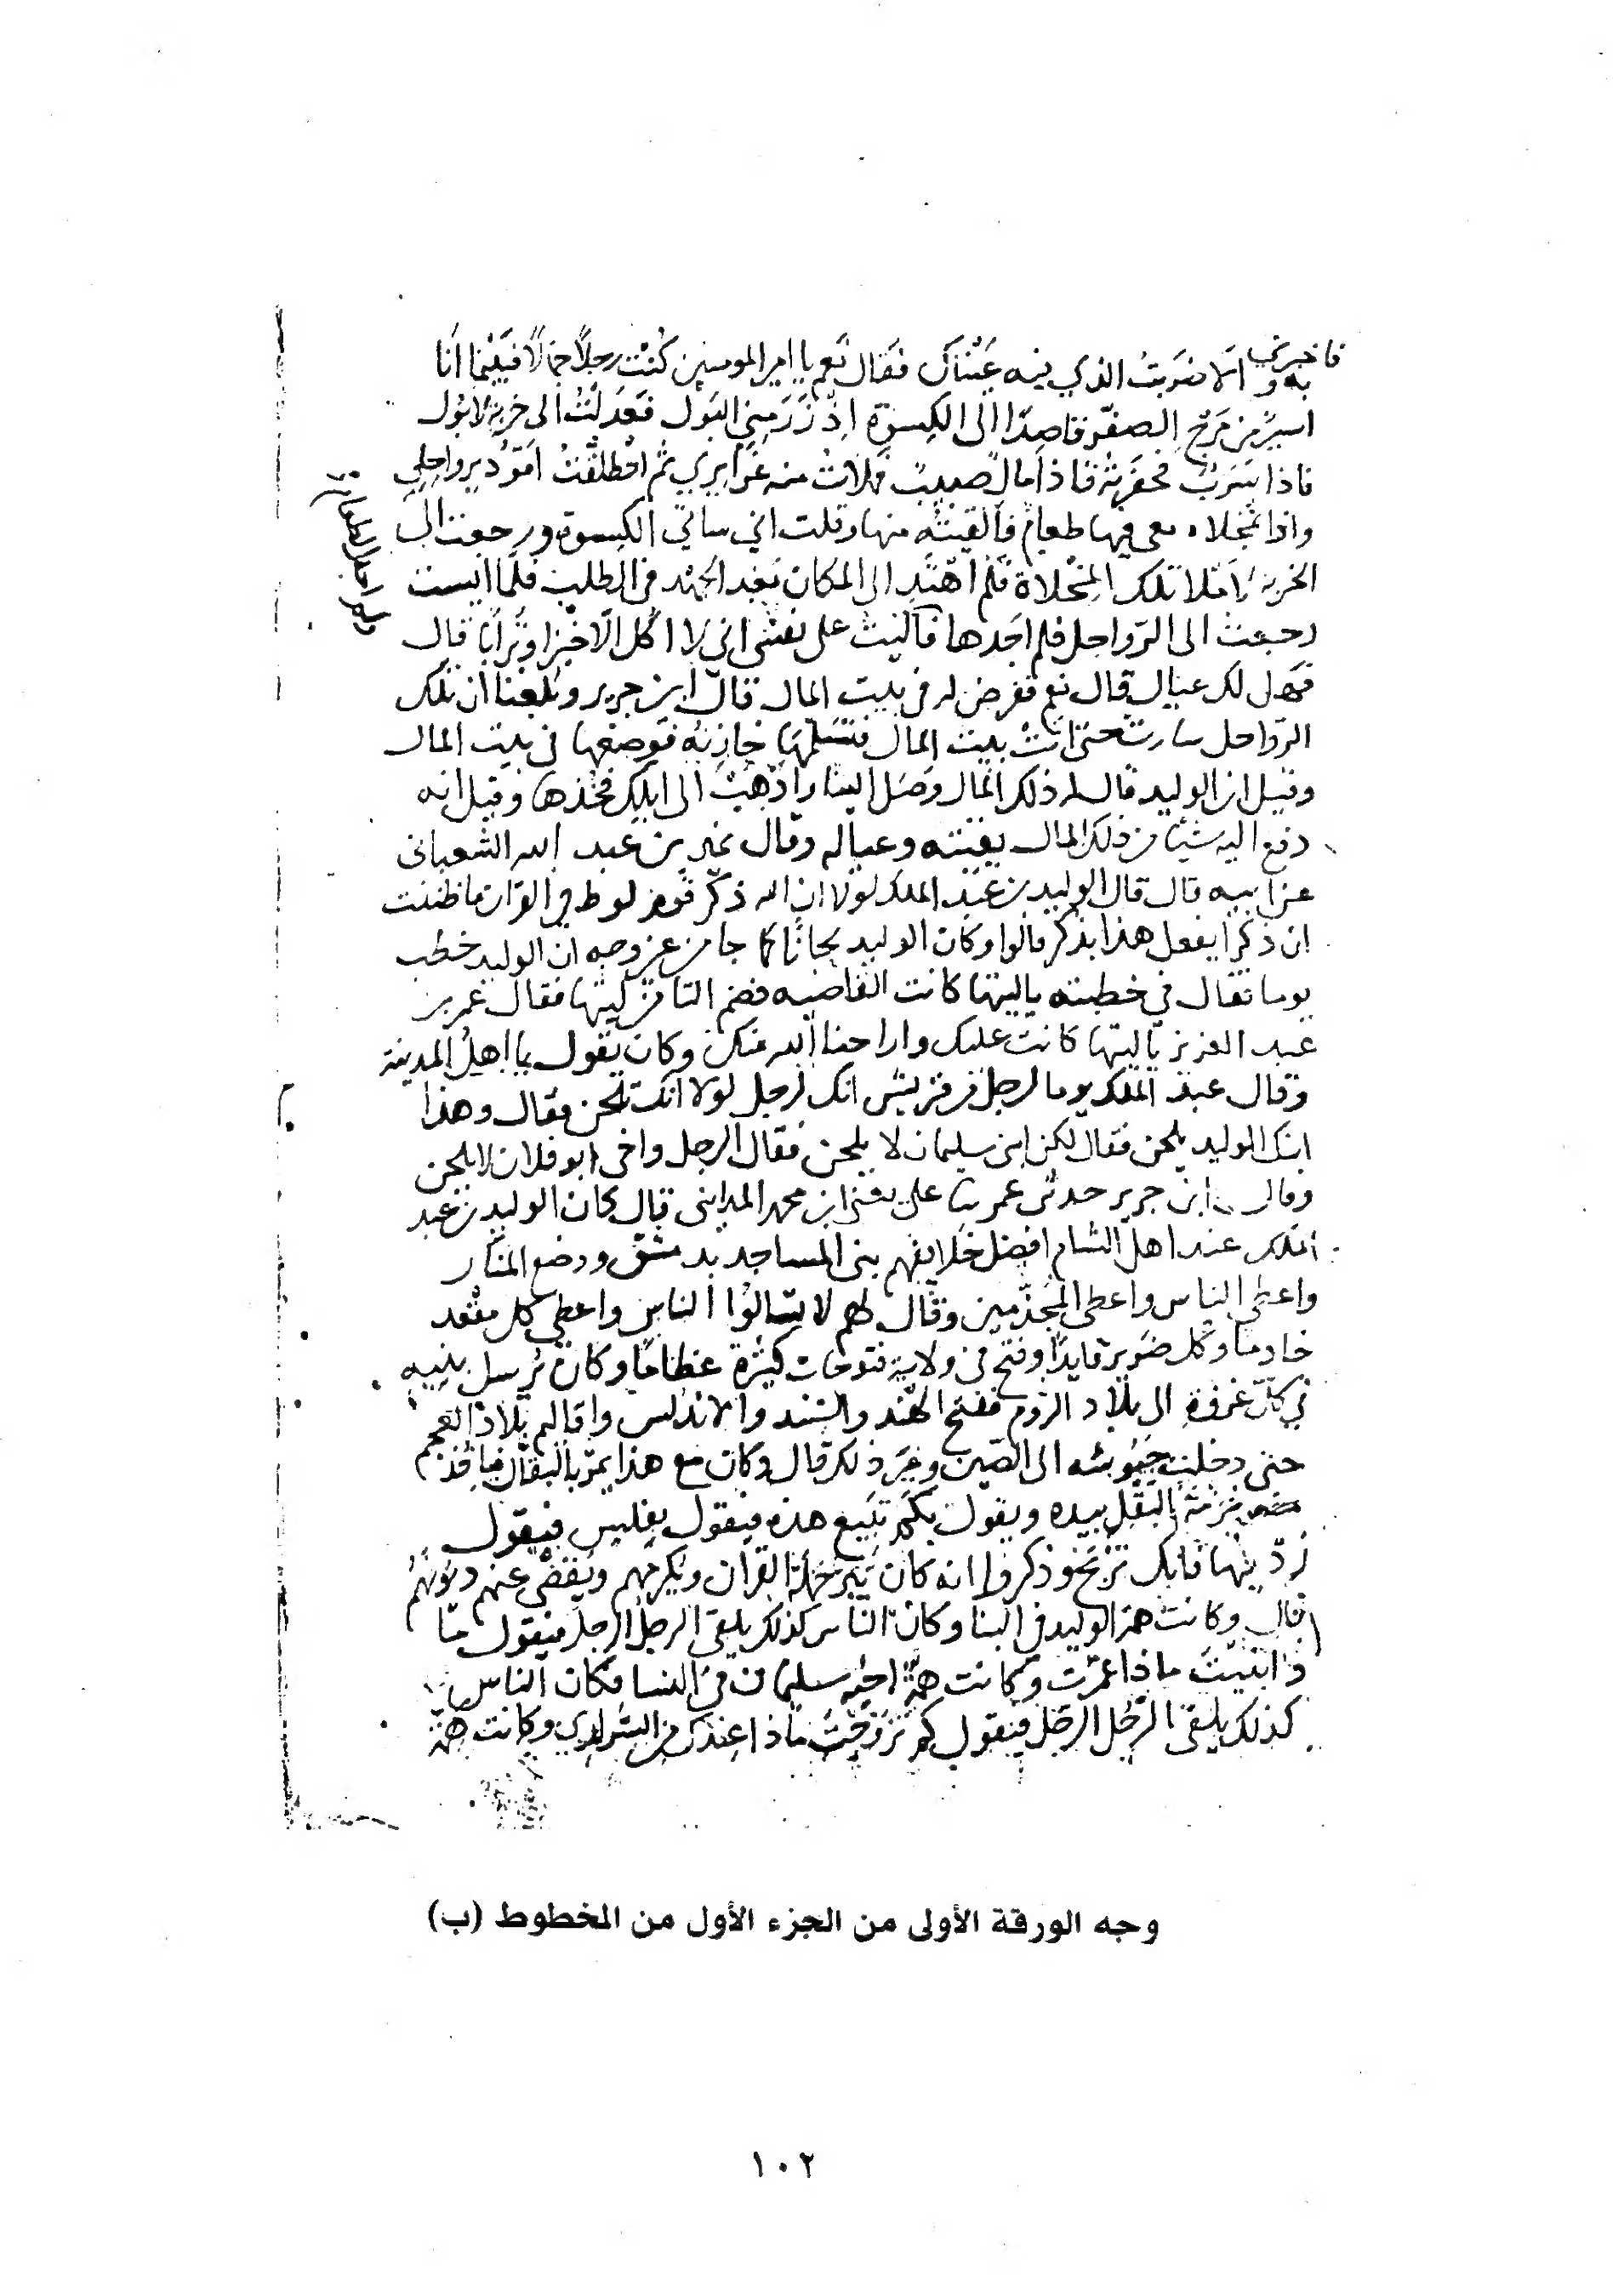 فاخبرني
به و الا ضربت الذي فيه عيناك فقال نعم يا امير المومنين كنت رجلا جمالا فبينما انا
اسير من مرج الصفر قاصدا الى الكسوة اذ زرمني البول فعدلت الى خربة لابول
فاذا سرب فحفرته فاذا مال صبيب فملات منه غرايري ثم انطلقت اقود برواحلي
واذا بمخلاه معى فيها طعام فالقيته منها وقلت اني ساتي الكسوة ورجعت الى
الخربة لاملا تلك المخلاة فلم اهتد الى المكان بعد الجهد في الطلب فلما ايست
رجعت الى الرواحل فلم اجدها فآليت على نفسي انى لا اكل الا خبزا وترابا قال
فهل لك عيال قال نعم ففرض له في بيت المال قال ابن جرير وبلغنا ان تلك
الرواحل سارت حتى اتت بيت المال فتسلمها خازنه فوضعها في بيت المال
وقيل ان الوليد قال له ذلك المال وصل الينا واذهب الى ابلك فخذها وقيل انه
دفع اليه شيئا من ذلك المال يقيته وعياله وقال نمير بن عبد الله الشعبانى
عن ابيه قال قال الوليد بن عبد الملك لولا ان الله ذكر قوم لوط في القران ما ظننت
ان ذكرا يفعل هذا بذكر قالوا وكان الوليد لحانا كما جا من غير وجه ان الوليد خطب
يوما فقال في خطبته ياليتها كانت القاضيه فضم التا من ليتها فقال عمر بن
عبد العزيز ياليتها كانت عليك واراحنا الله منك وكان يقول يا اهل المدينة
وقال عبد الملك يوما لرجل من قريش انك لرجل لولا انك تلحن فقال وهذا
ابنك الوليد يلحن فقال لكن ابني سليمان لا يلحن فقال الرجل واخي ابو فلان لا يلحن
وقال ابن جرير حدثني عمر ثنا علي يعني ابن محمد المدايني قال كان الوليد بن عبد
الملك عند اهل الشام افضل خلايفهم بنى المساجد بدمشق ووضع المنار
واعطى الناس واعطى المجذمين وقال لهم لا تسالوا الناس واعطى كل مقعد
خادما وكل ضرير قايدا وفتح في ولايته فتوحات كثيرة عظاما وكان يرسل بنيه
في كل غزوة الى بلاد الروم ففتح الهند والسند والاندلس واقاليم بلاد العجم
حتى دخلت جيوشه الى الصين وغير ذلك قال وكان مع هذا يمر بالبقال فياخذ
حزمة البقل بيده ويقول بكم تبيع هذه فيقول بفليس فيقول
زد فيها فانك تربح وذكروا انه كان يبر حملة القران ويكرمهم ويقضي عنهم ديونهم
قال وكانت همة الوليد في البنا وكان الناس كذلك يلقى الرجل الرجل فيقول ما
ذا بنيت ماذا عمرت وكانت همة اخيه سليمان في النسا فكان الناس
كذلك يلقى الرجل الرجل فيقول كم تزوجت ماذا عندك من السراري وكانت همة
وجه الورقة الأولى من الجزء الأول من المخطوط (ب)
١٠٢